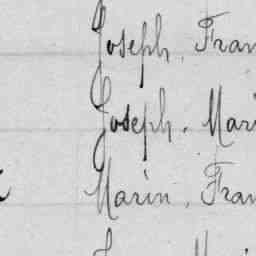 Joseph, Fran
Joseph. Mari
Marin, Fran